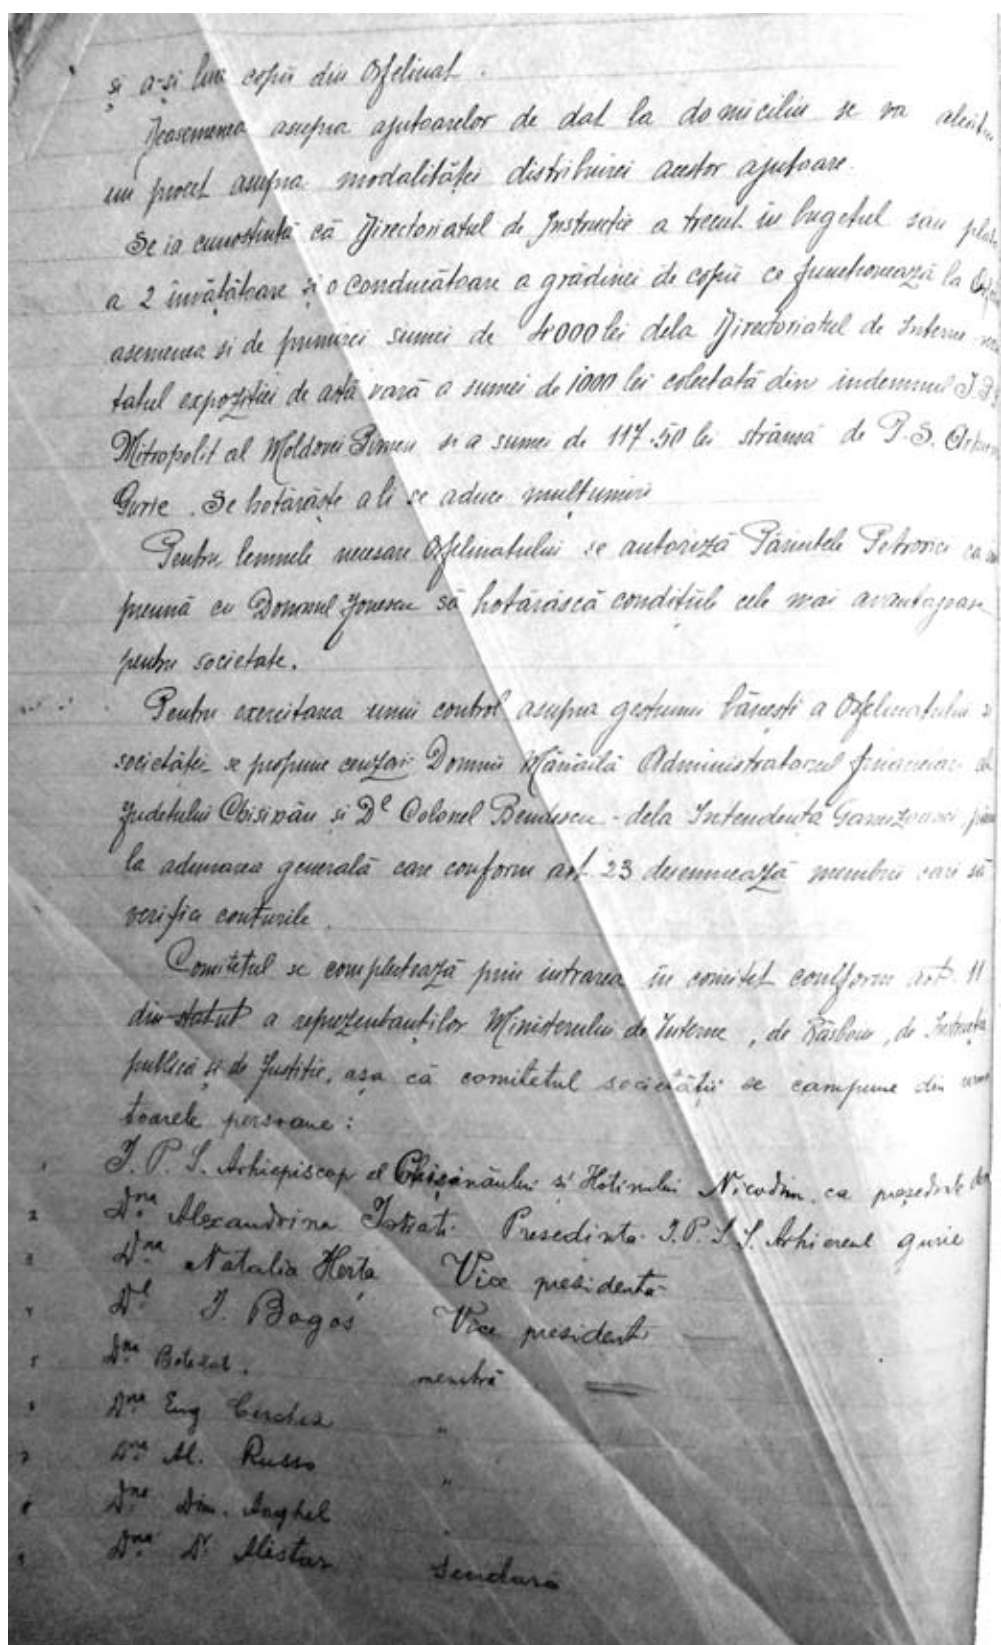 și a-și lua copii din Orfelinat.
Deasemenea asupra ajutoarelor de dat la domiciliu se va alcătui
un proect asupra modalităței distribuirei acestor ajutoare.
Se ia cunostintă că Directoriatul de Instrucție a trecut in bugetul sau plata
a 2 învățătoare și o conducătoare a grădinei de copii ce funcționează la
asemenea si de primirei sumei de 4000 lei dela Directoriatul de Interne
tatul expoziției de astă vară a sumei de 1000 lei colectată din indemnul I. P.
Mitropolit al Moldovei Pimen si a sumei de 117.50 lei strânsă de P.S.
Gurie. Se hotărăște a li se aduce mulțumiri
Pentru lemnele necesare Orfelinatului se autoriză Părintele Petrovici ca
preună cu Domnul Ionescu să hotărăscă condițiile cele mai avantagioase
pentru societate.
Pentru exercitarea unui control asupra gestiunii bănești a Orfelinatului
societăței se propune cenzori Domnii Mănăilă Administratorul financiar al
Judetului Chisinău si Dl Colonel Bendescu - dela Intendența Garnizoanei
la adunarea generală care conform art. 23 desemnează membrii cari să
verifice conturile.
Comitetul se complectează prin intrarea în comitet conform art. 11
din statut a reprezentanților Ministerului de Interne, de Răsboiu, de
publică și de Justiție, așa că comitetul societății se compune din
toarele persoane:
1 I. P. S. Arhiepiscop al Chișinăului si Hotinului Nicodim, ca președinte
2 Dna Alexandrina Istrati Presedinta I.P.S.S. Arhiereul Gurie
3 Dna Natalia Herța Vice presidentă
4 Dl I. Bogos Vice president
5 Dna Botezat. membră
6 Dna Eug Cerchez "
7 Dna Al. Russo "
8 Dna Dim. Anghel
9 Dna Dr Alistar